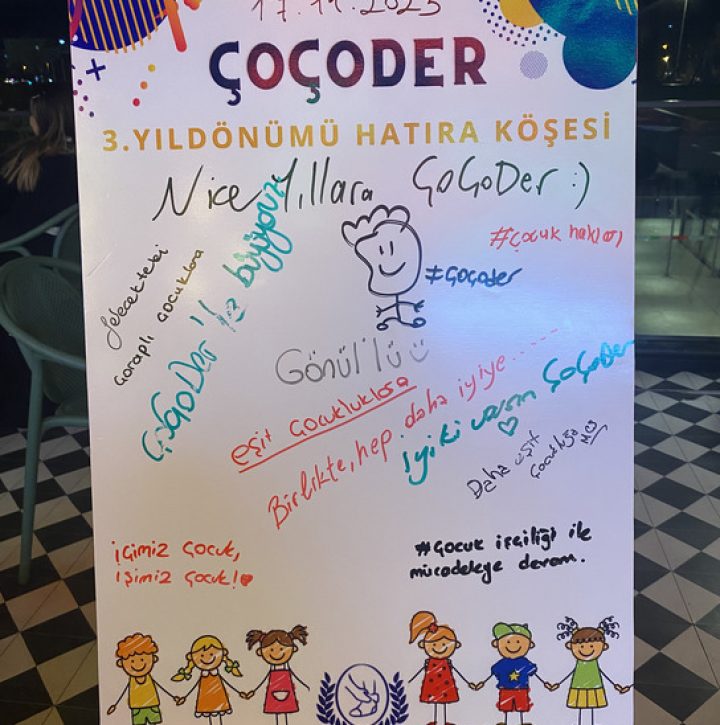 17.11.2023
ÇOÇODER
3.YILDÖNÜMÜ HATIRA KÖŞESİ
Nice Yıllara ÇoÇoDer :)
#Çocuk hakları
#Çoçoder
Gelecekteki
Çoraplı çocuklara
ÇoÇoDer'le büyüyoruz
Gönül'lü
eşit çocukluklara
Birlikte, hep daha iyiye.....
iyiki varsın ÇoÇoDer
Daha eşit
çocukluğa
içimiz çocuk,
işimiz çocuk!
#Çocuk işçiliği ile
mücadeleye devam.